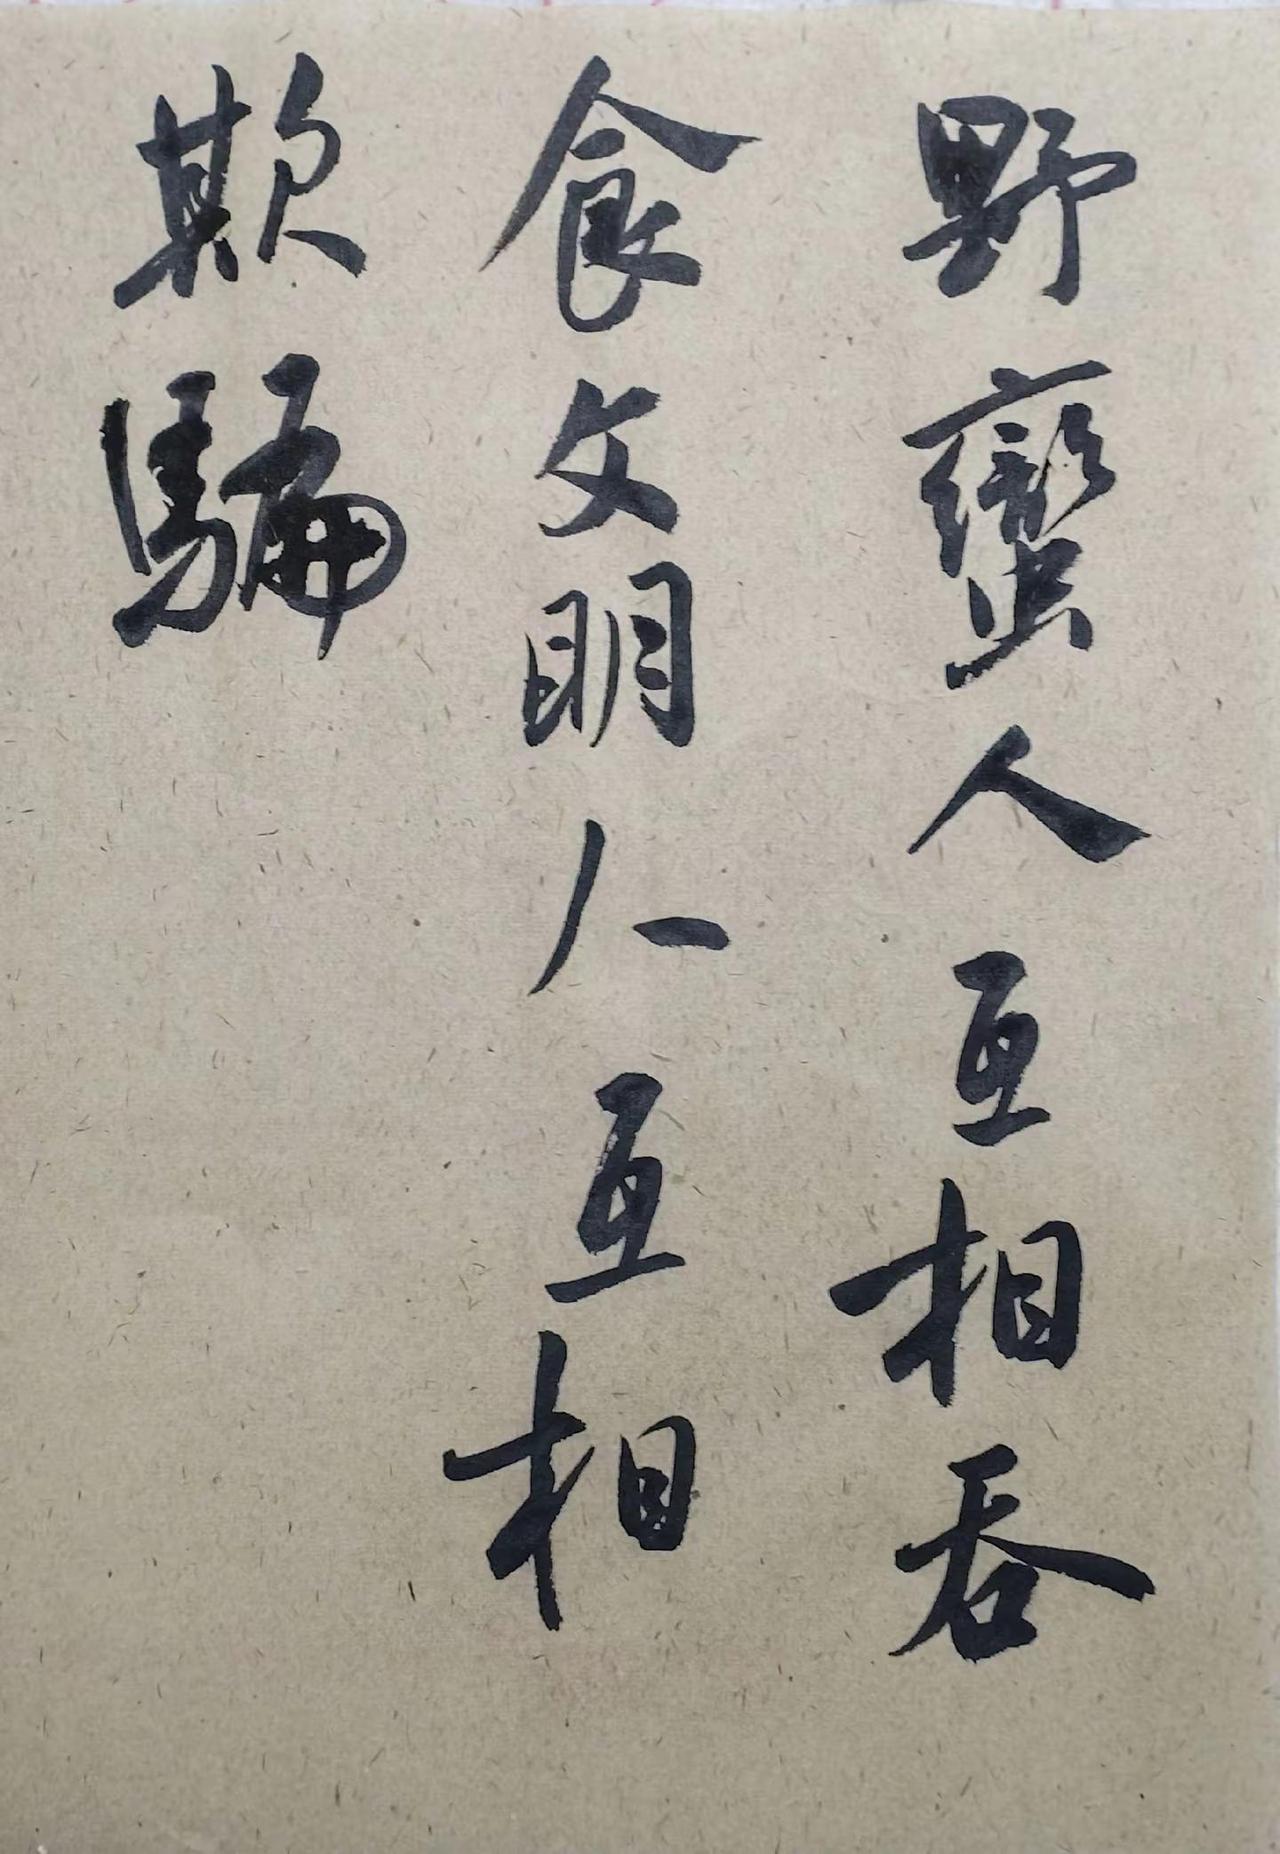 野蠻人互相吞
食文明人互相
欺騙